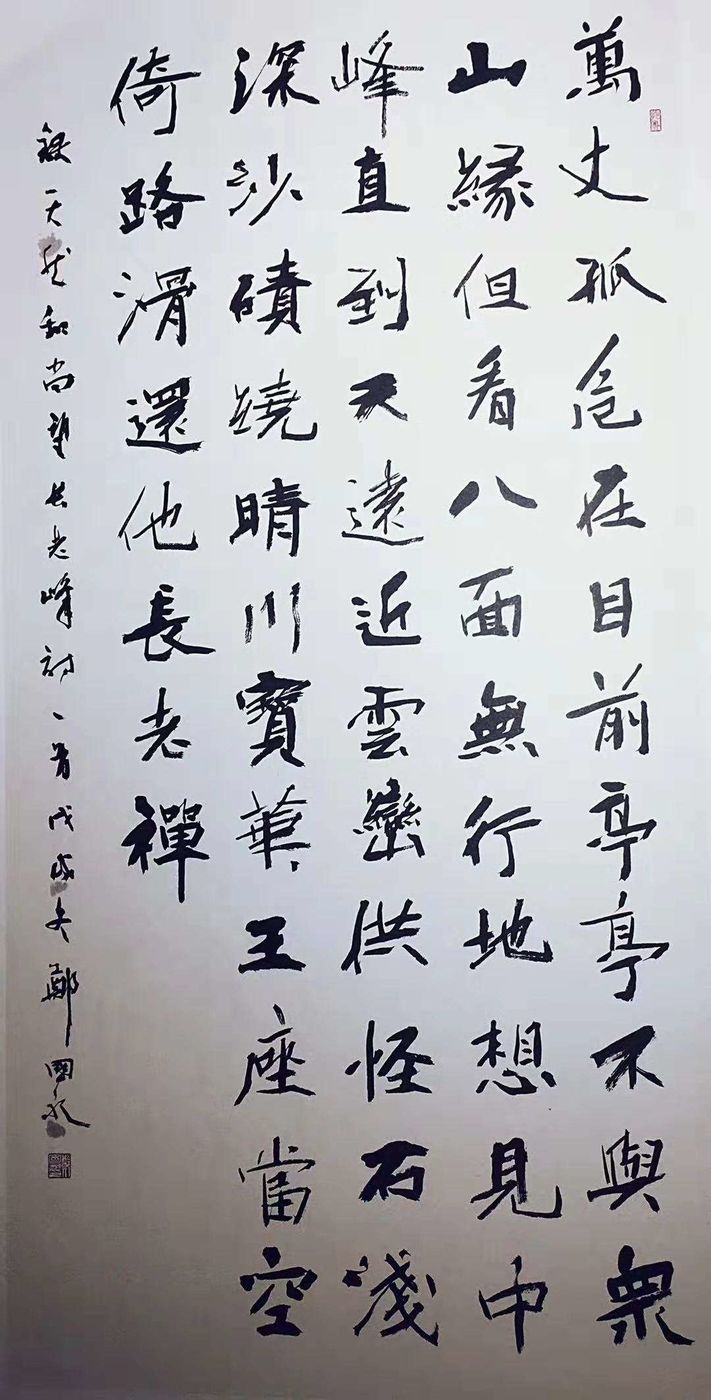 萬丈孤危在目前亭亭不與衆
山緣但看八面無行地想見中
峰直到天遠近雲巒供怪石淺
深沙磧繞晴川寶華王座當空
倚路滑還他長老禪
錄天然和尚望長老峰詩一首戊戌冬鄭國